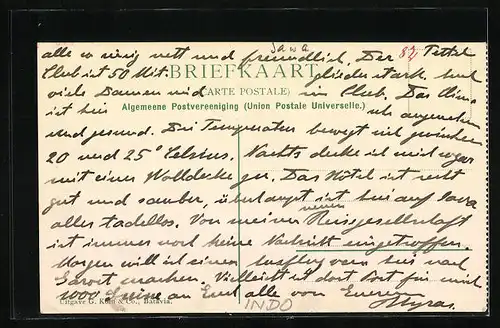 Java
alle so riesig nett und freundlich. Der 82 Tettel
Club ist 50 Mit-
BRIEFKAART
glieder stark. Auch
viele Damen sind
(CARTE POSTALE)
im Club. Das Clima
ist hier
Algemeene Postvereeniging (Union Postale Universelle.)
sehr angenehm
und gesund. Die Temperatur bewegt sich zwischen
20 und 25° Celsius. Nachts decke ich mich sogar
mit einer Wolldecke zu. Das Hôtel ist recht
gut und sauber, überhaupt ist hier auf Java
alles tadellos. Von meiner neuen Reisegesellschaft
ist immer noch keine Nachricht eingetroffen.
Morgen will ich einen Ausflug von hier nach
Garoet machen. Vielleicht ist dort Post für mich
1000 Grüsse an Euch alle von Eurem
Uitgave G. Kolff & Co., Batavia.
INDO